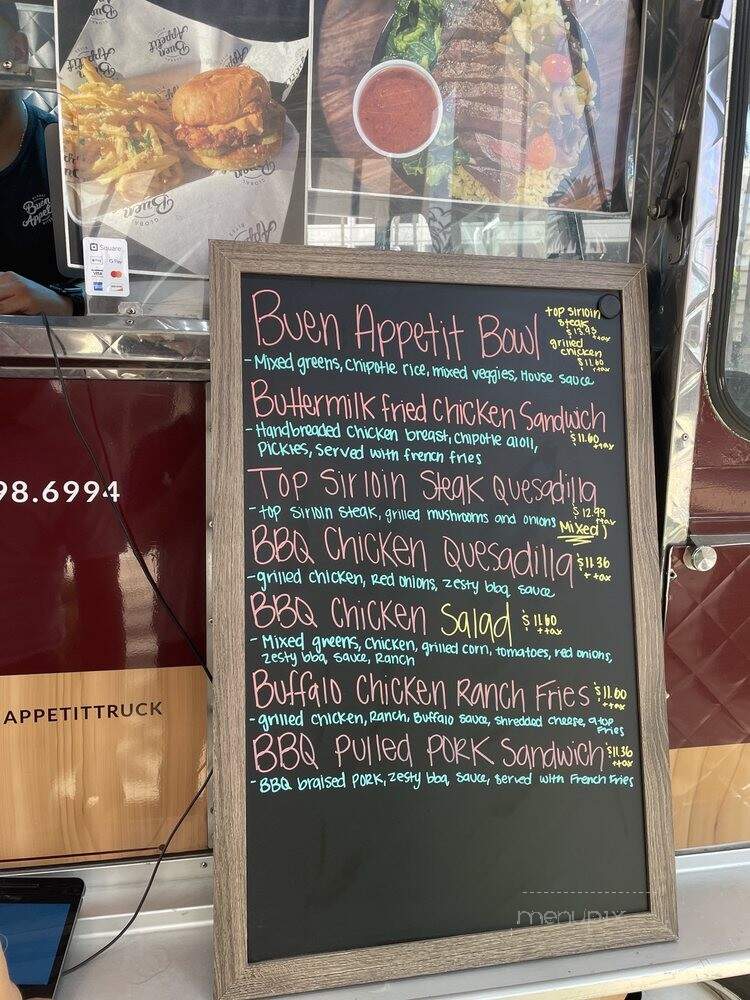 Buen Appetit
Buen
Appetit
Square
G Pay
VISA
Buen Appetit Bowl
top sirloin
steak
$13.95
+tax
grilled
chicken
$11.60
+tax
-Mixed greens, chipotle rice, mixed veggies, House sauce
Buttermilk fried Chicken Sandwich
-Handbreaded chicken breast, chipotle aioli,
$11.60
+tax
Pickles, served with french fries
Top Sirloin Steak Quesadilla
-top sirloin steak, grilled mushrooms and onions
$12.99
+tax
Mixed)
98.6994
BBQ Chicken Quesadilla
$11.36
+tax
-grilled chicken, red onions, zesty bbq sauce
BBQ Chicken Salad
$11.60
+tax
-Mixed greens, chicken, grilled corn, tomatoes, red onions,
zesty bbq, sauce, ranch
Buffalo Chicken Ranch Fries
$11.60
+tax
-grilled chicken, Ranch, Buffalo sauce, shredded cheese, atop
Fries
APPETITTRUCK
BBQ Pulled Pork Sandwich
$11.36
+tax
-BBQ braised pork, zesty bbq, sauce, served with French Fries
menupix